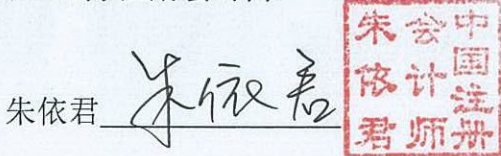 朱依君 朱依君
中国注册
会计师
朱依君